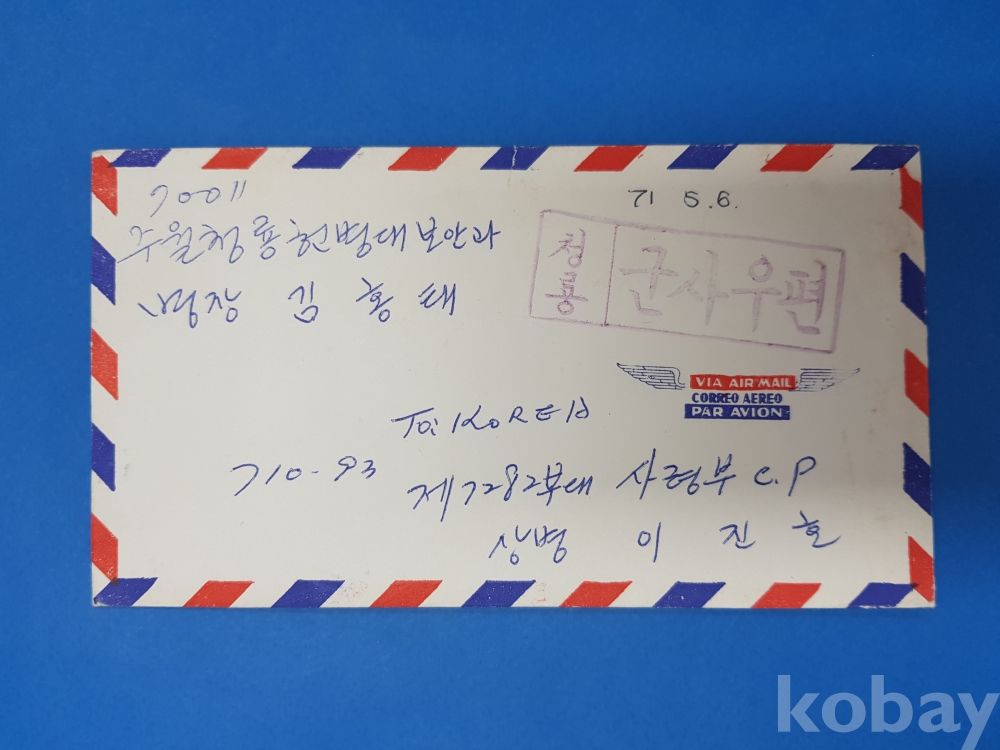 70011
주월청룡헌병대보안과
병장 김 홍 태
71 5.6.
청룡
군사우편
VIA AIR MAIL
CORREO AEREO
PAR AVION
To: KOREA
710-93
제7282부대 사령부 C.P
상병 이 진 호
kobay